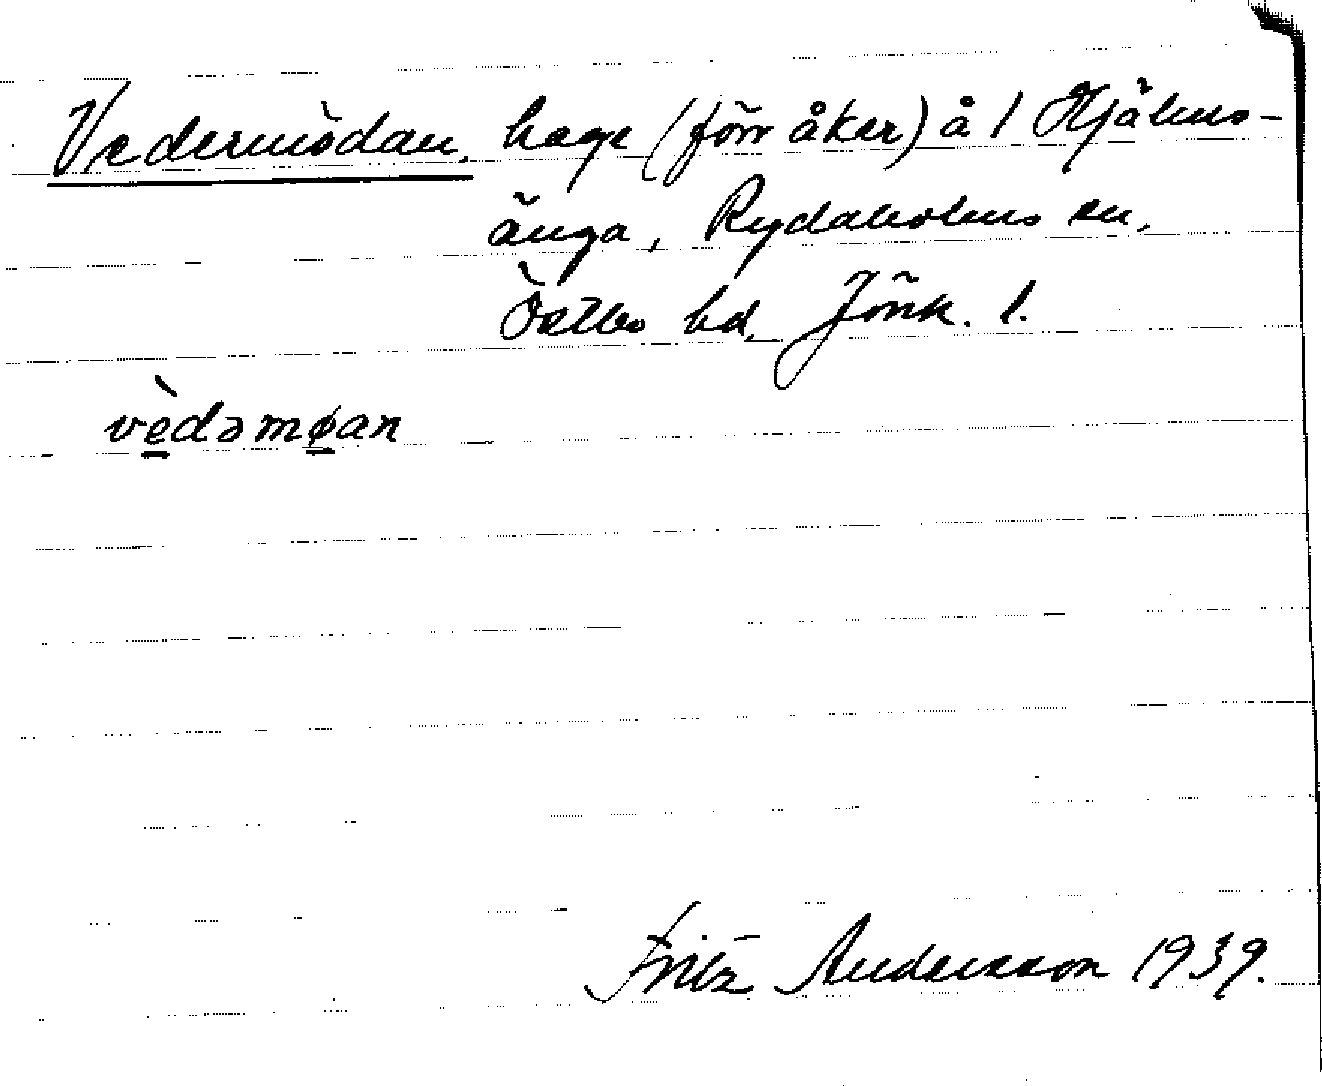 Vedermödan, hage (förr åker) å 1 Hjälms-
änga, Rydaholms sn,
Östbo hd, Jönk. l.
vèdəmøan
Fritz Andersson 1939.